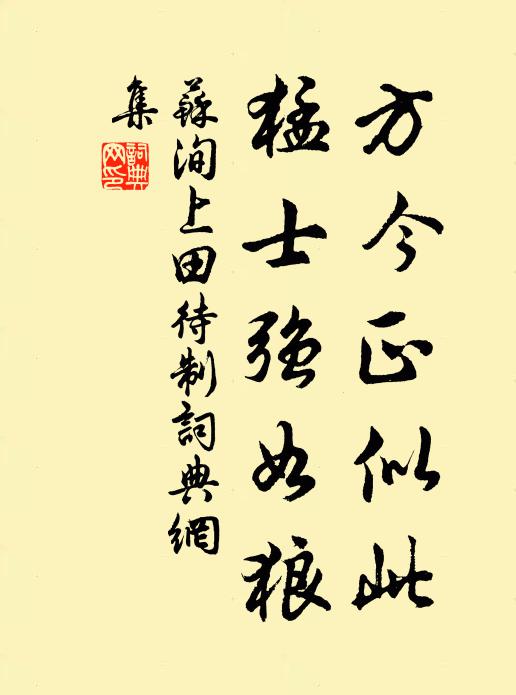 方今正似此
猛士強如狼
蘇洵上田待制詞典網
集
詞典
网印